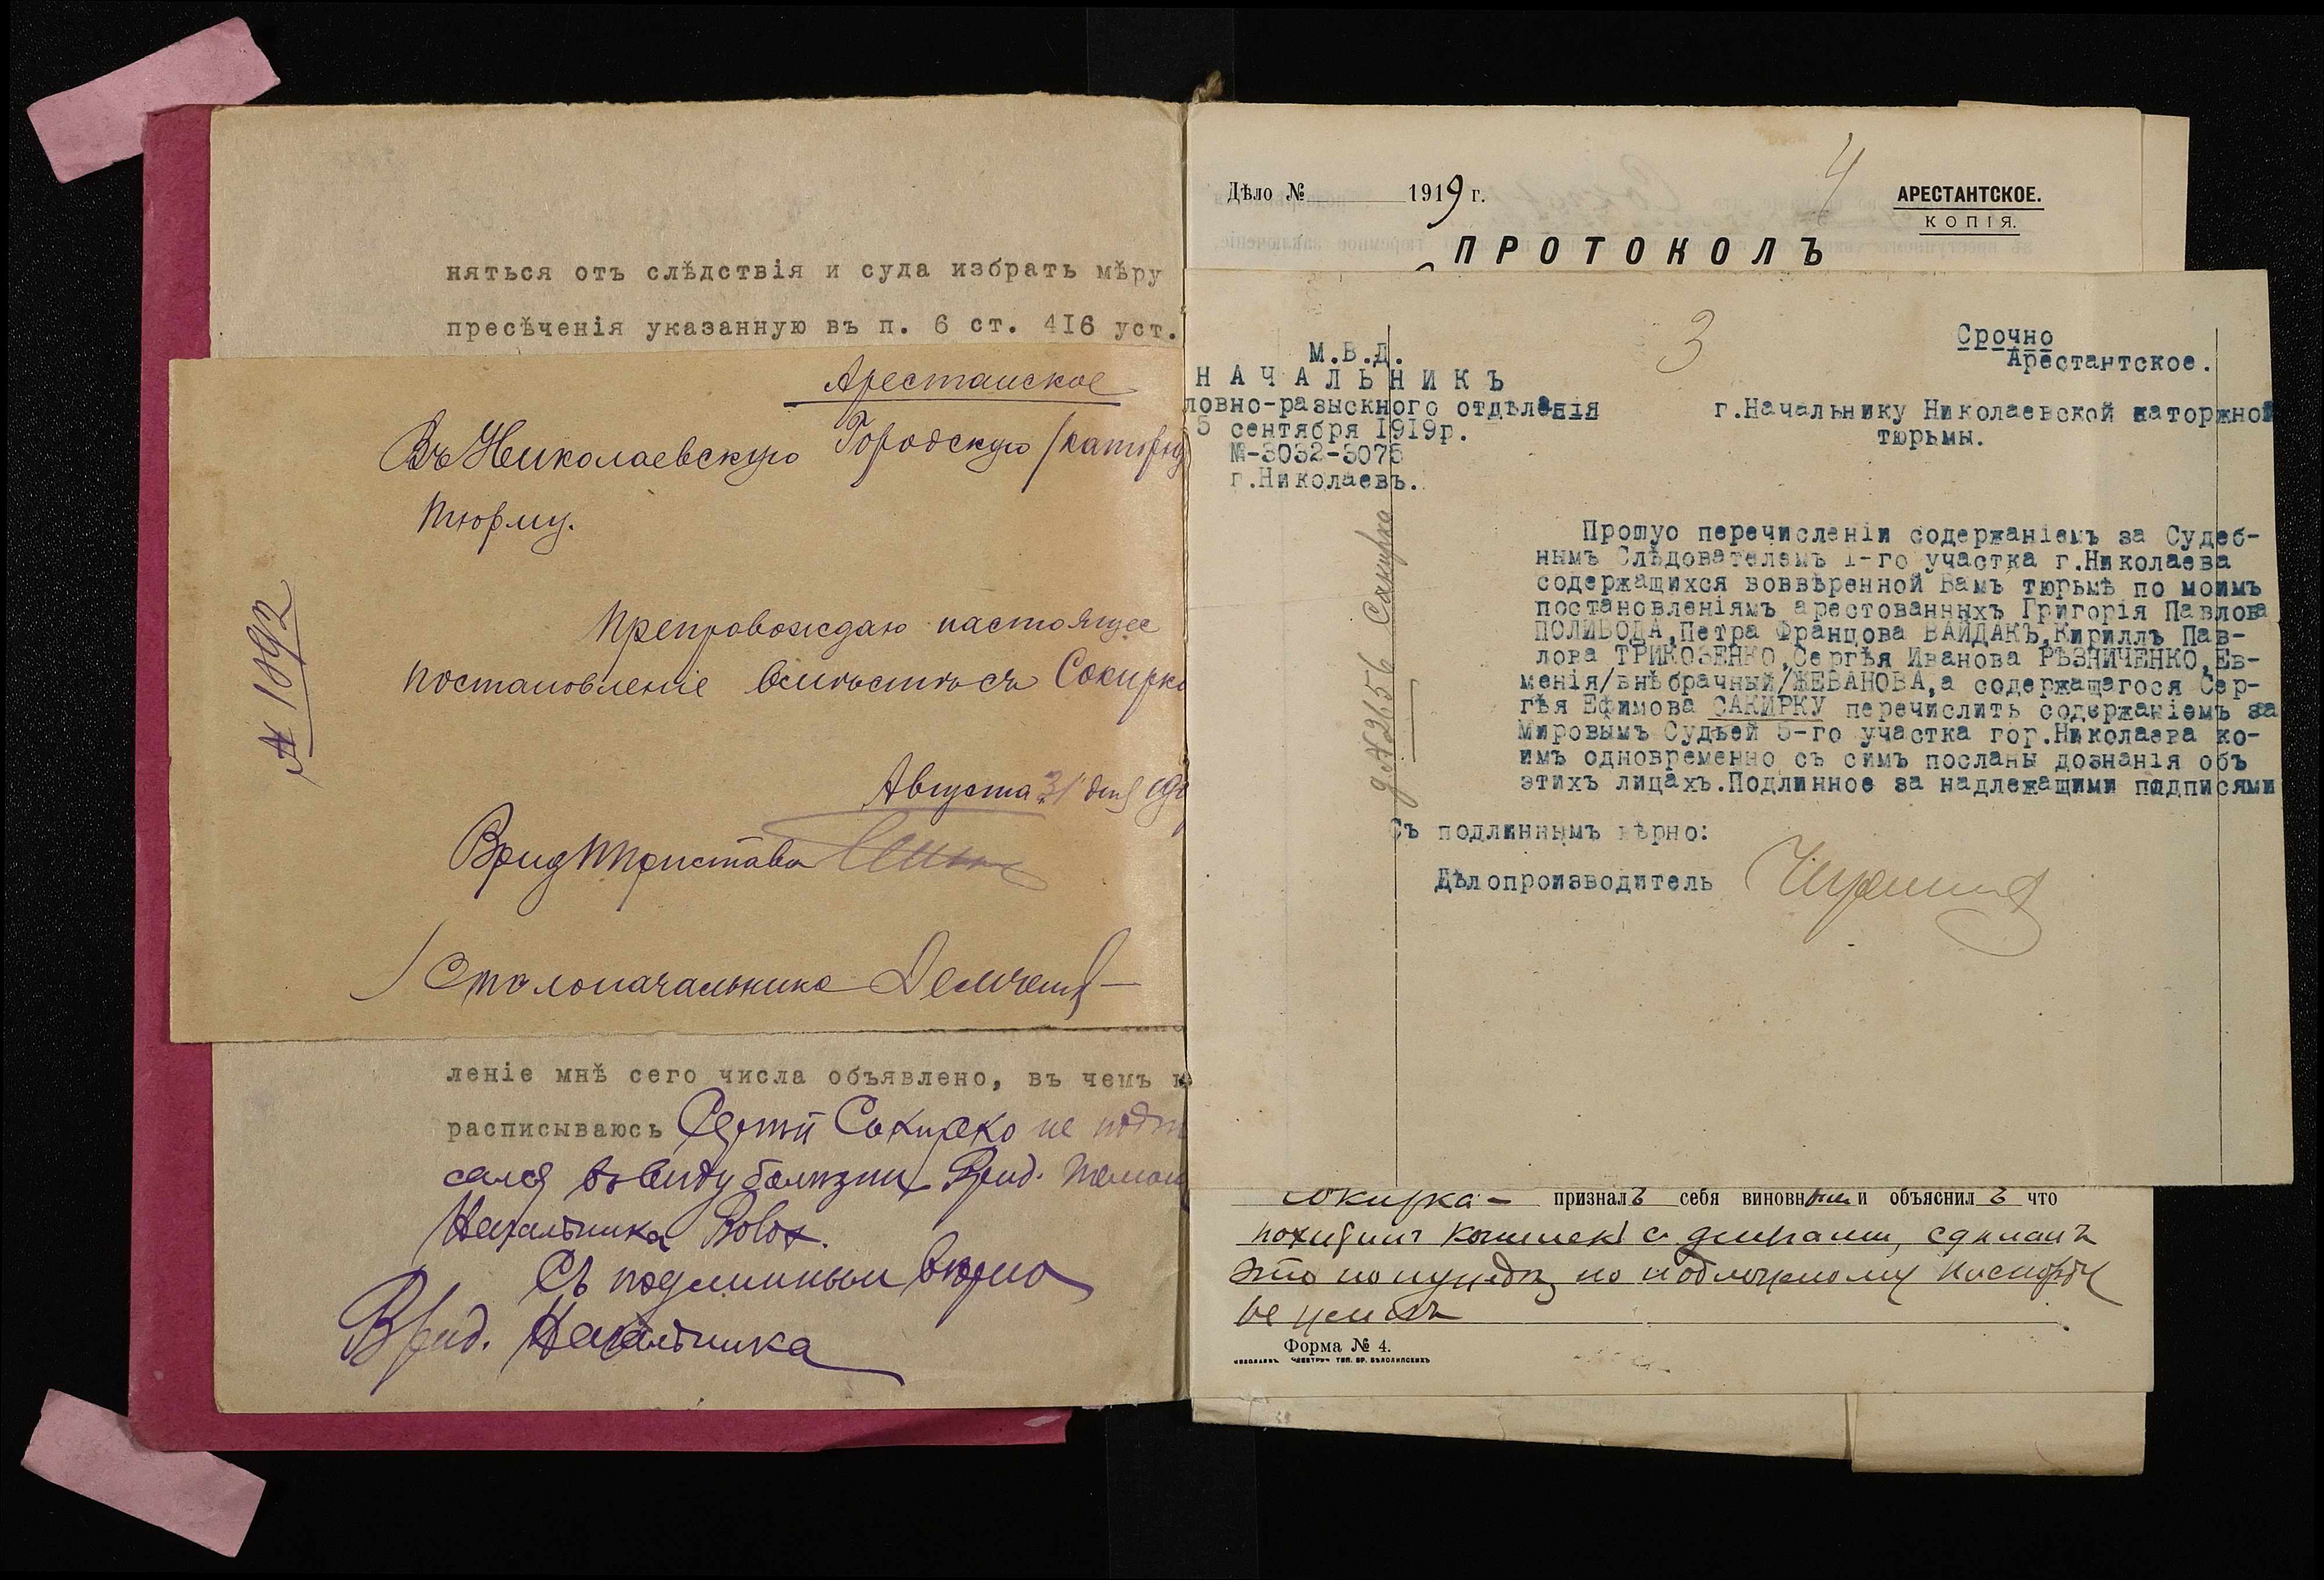 няться отъ слѣдствія и суда избрать мѣру
пресѣченія указанную въ п. 6 ст. 4I6 уст.
Арестанское
Въ Николаевскую Городскую /каторж
тюрму.
№ 1892
Препровождаю настоящее
постановление вместѣ съ Сокирко
Августа 31 дня
Врид Пристава
Столоначальника
леніе мнѣ сего числа объявлено, въ чемъ и
расписываюсь Сергѣй Сокирко не подпи
сался въ виду болезни Врид. Помощ
Начальника
Съ подлинным вѣрно
Врид. Начальника
Дѣло № 1919 г.
4
АРЕСТАНТСКОЕ.
КОПІЯ.
ПРОТОКОЛЪ
3
Срочно
Арестантское.
М.В.Д.
НАЧАЛЬНИКЪ
ловно-разыскного отдѣленія
5 сентября I9I9г.
№-3032-3075
г.Николаевъ.
г.Начальнику Николаевской каторжной
тюрьмы.
д №2656 Сакирка
Прошуо перечисленіи содержаніемъ за Судеб-
нымъ Слѣдователемъ I-го участка г.Николаева
содержащихся вовввѣренной Вамъ тюрьмѣ по моимъ
постановленіямъ арестованныхъ Григорія Павлова
ПОЛИВОДА,Петра Францова ВАЙДАКЪ,Кириллъ Пав-
лова ТРИКОЗЕНКО,Сергѣя Иванова РѢЗНИЧЕНКО,Ев-
менія/внѣбрачный/ЖЕВАНОВА,а содержащагося Сер-
гѣя Ефимова САКИРКУ перечислить содержаніемъ за
Мировымъ Судьей 5-го участка гор.Николаева ко-
имъ одновременно съ симъ посланы дознанія объ
этихъ лицахъ.Подлинное за надлежащими подписями
Съ подлиннымъ вѣрно:
Дѣлопроизводитель
Сокирка - призналъ себя виновным и объяснилъ что
похитил кошелек с деньгами, сделалъ
это по нужде, но по подложному паспорту
не жилъ
Форма № 4.